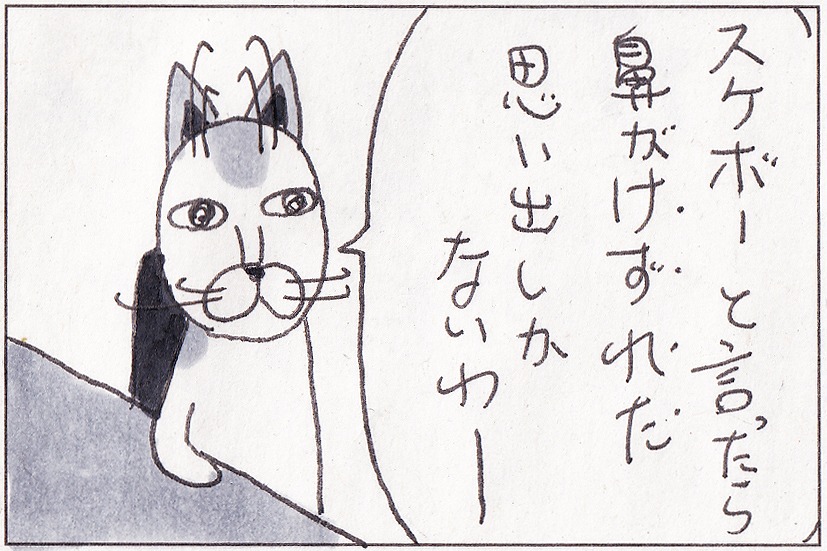 スケボーと言ったら
鼻がけずれだ
思い出しか
ないわー